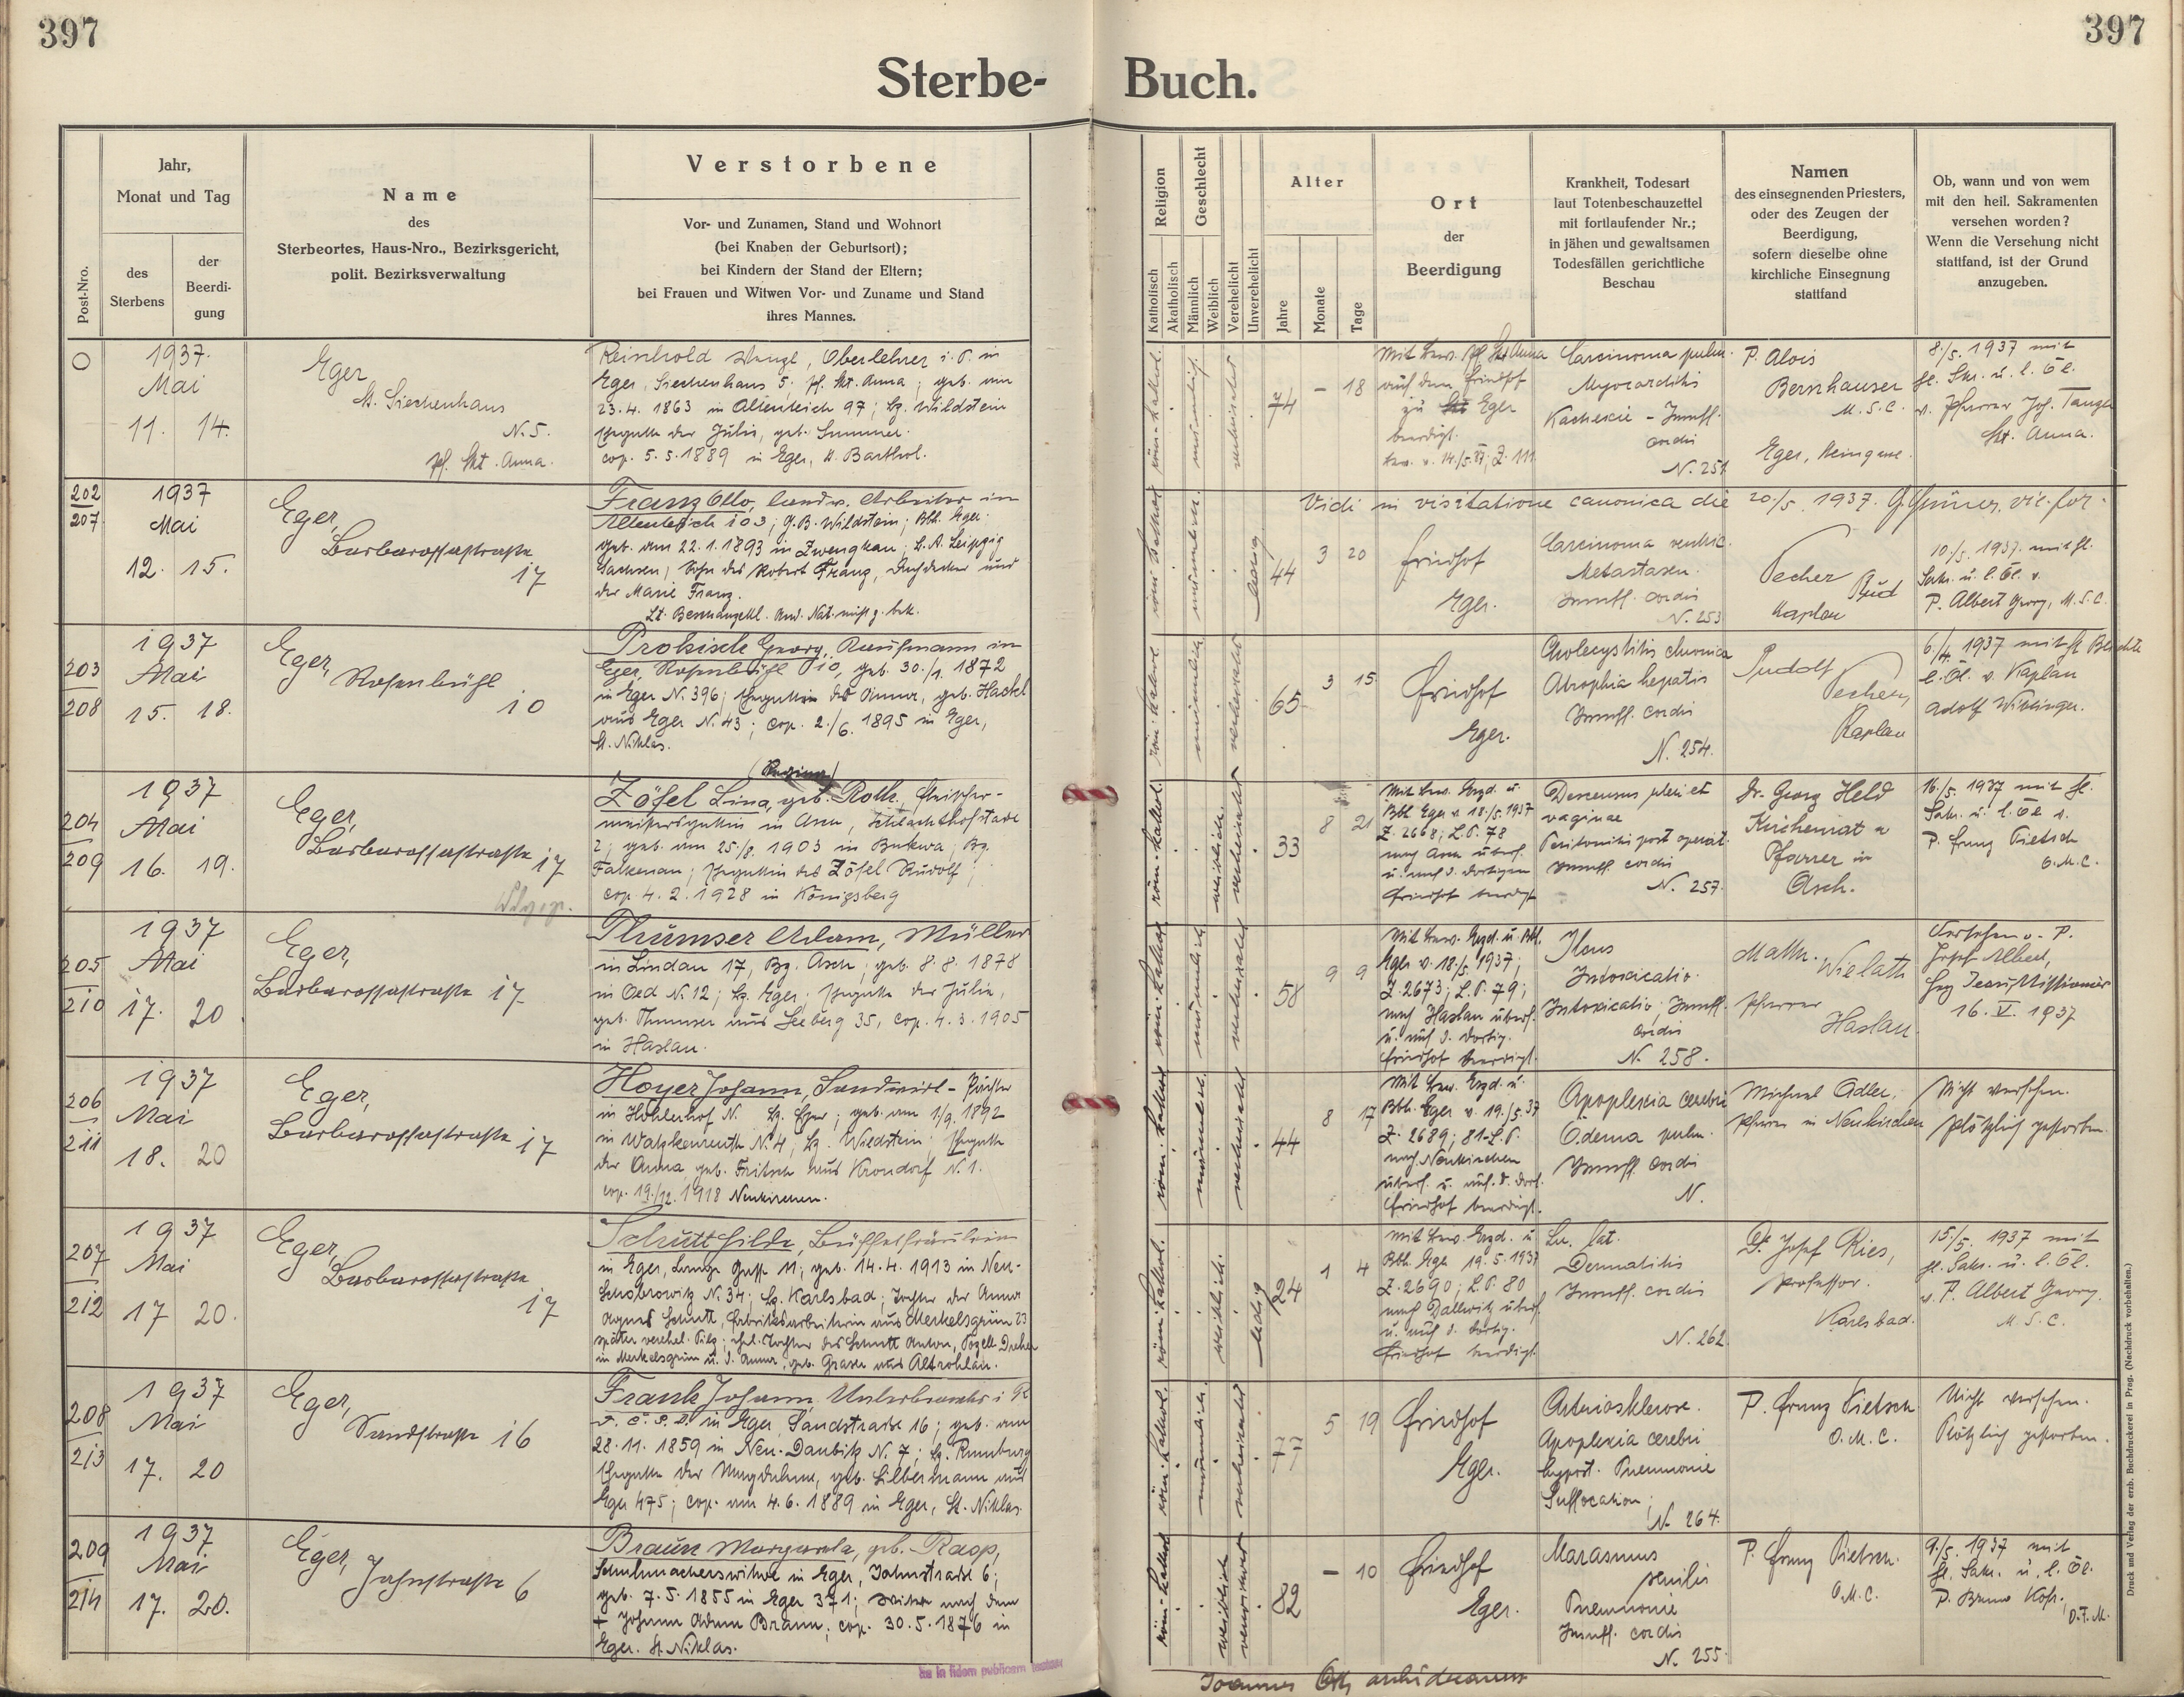 397
397
Sterbe-
Buch.
Post-Nro.
Jahr,
Monat und Tag
des
Sterbens
der
Beerdi-
gung
Name
des
Sterbeortes, Haus-Nro., Bezirksgericht,
polit. Bezirksverwaltung
Verstorbene
Vor- und Zunamen, Stand und Wohnort
(bei Knaben der Geburtsort);
bei Kindern der Stand der Eltern;
bei Frauen und Witwen Vor- und Zuname und Stand
ihres Mannes.
Religion
Katholisch
Akatholisch
Geschlecht
Männlich
Weiblich
Verehelicht
Unverehelicht
Alter
Jahre
Monate
Tage
Ort
der
Beerdigung
Krankheit, Todesart
laut Totenbeschauzettel
mit fortlaufender Nr.;
in jähen und gewaltsamen
Todesfällen gerichtliche
Beschau
Namen
des einsegnenden Priesters,
oder des Zeugen der
Beerdigung,
sofern dieselbe ohne
kirchliche Einsegnung
stattfand
Ob, wann und von wem
mit den heil. Sakramenten
versehen worden?
Wenn die Versehung nicht
stattfand, ist der Grund
anzugeben.
O
1937.
Mai
11. 14.
Eger
St. Siechenhaus
N. 5.
Pf. Skt. Anna.
Reinhold Wenzl, Oberlehrer i. P. in
Eger, Siechenhaus 5, Pf. Skt. Anna; geb. am
23.4. 1863 in Altenteich 97; Bz. Wildstein
Ehegatte der Julie, geb. Summer.
cop. 5.5.1889 in Eger, St. Barthol.
röm. kathol.
männlich
verheiratet
74 - 18
Mit Bew. Pf. Skt. Anna
auf dem Friedhof
zu Eger
beerdigt.
Bew. v. 14./5.37; Z. 111
Carcinoma pulm.
Myocarditis
Kachexie - Insuff.
cordis
N. 251
P. Alois
Bernhauser
M.S.C.
Eger
8./5. 1937 mit
hl. Skr. u. l. Öl.
v. Pfarrer Joh. Tange
Skt. Anna.
202
207
1937
Mai
12. 15.
Eger,
Barbarossastraße
17
Franz Otto, landw. Arbeiter in
Altenteich 103; G.B. Wildstein; Bbh. Eger.
geb. am 22.1.1893 in Zwengkau; B.A. Leipzig
Sachsen; Sohn des Robert Franz, Dachdecker und
der Marie Franz.
röm. kathol.
männlich
ledig
44 3 20
Vidi in visitatione canonica die 20./5. 1937. G. Grüner, vic. for.
Friedhof
Eger.
Carcinoma ventric.
Metastasen.
Insuff. cordis
N. 253
Pecher
Rud
Kaplan
10./5. 1937 mit hl.
Sakr. u. l. Öl. v.
P. Albert Georg, M.S.C.
203
208
1937
Mai
15. 18.
Eger,
Rosenbühl
10
Prokisch Georg, Kaufmann in
Eger, Rosenbühl 10, geb. 30./1. 1872
in Eger N. 396; Ehegatte der Anna, geb. Hackl
aus Eger N. 43; cop. 2./6. 1895 in Eger,
St. Niklas.
röm. kathol.
männlich
verheiratet
65 3 15
Friedhof
Eger.
Cholecystitis chronica
Atrophia hepatis
Insuff. cordis
N. 254.
Rudolf
Pecher,
Kaplan
6./4. 1937 mit
l. Öl. v. Kaplan
Adolf
204
209
1937
Mai
16. 19.
Eger,
Barbarossastraße 17
Zöfel Lina, geb. Roth, Fleischer-
meistersgattin in Asch, Schlachthofstraße
2; geb. am 25./8. 1903 in Bukwa, Bg.
Falkenau; Ehegattin des Zöfel Rudolf;
cop. 4.2.1928 in Königsberg
röm. kathol.
weiblich.
verheiratet
33 8 21
Mit Bew. Bzgd. u.
Bbh. Eger v. 18./5. 1937
Z. 2668; L.P. 78
nach Asch überf.
u. auf d. dortigen
Friedhof beerdigt
Descensus uteri et
vaginae
Peritonitis post operat.
Insuff. cordis
N. 257.
Dr. Georg Held
Kirchenrat u
Pfarrer in
Asch.
16./5. 1937 mit hl.
Sakr. u. l. Öl v.
P. Franz Pietsch
O.M.C.
205
210
1937
Mai
17. 20
Eger,
Barbarossastraße 17
Thumser Adam, Müller
in Lindau 17, Bz. Asch; geb. 8.8. 1878
in Oed N. 12; Bz. Eger; Ehegatte der Julie,
geb. Thumser aus Seeberg 35, cop. 4.3.1905
in Haslau.
röm. kathol.
männlich
verheiratet
58 9 9
Mit Bew. Bzgd. u. Bbh.
Eger v. 18./5. 1937;
Z. 2673; L.P. 79;
nach Haslau überf.
u. auf d. dortig.
Friedhof beerdigt.
Ileus
Intoxicatio.
Intoxicatio; Insuff.
cordis
N. 258.
Math. Wielath
Pfarrer
Haslau.
Versehen v. P.
Josef Albert,
Herz Jesu Missionär
16. V. 1937
206
211
1937
Mai
18. 20
Eger,
Barbarossastraße 17
Hoyer Johann, Landwirt - Pächter
in Höhlenhof N. Bz. Eger; geb. am 1./9. 1892
in Watzkenreuth N. 4, Bz. Wildstein; Ehegatte
der Anna, geb. Fritsch aus Krondorf N. 1.
cop. 19./12. 1918 Neukirchen.
röm. kathol.
männlich
verheiratet
44 8 17
Mit Bew. Bzgd. u.
Bbh. Eger v. 19./5.37
Z. 2689; 81-L.P.
nach Neukirchen
überf. u. auf d. dort.
Friedhof beerdigt.
Apoplexia cerebri
Ödema pulm.
Insuff. cordis
N.
Michael Adler,
Pfarrer in Neukirchen
Nicht versehen.
plötzlich gestorben.
207
212
1937
Mai
17 20.
Eger,
Barbarossastraße
17
Schutt Hilde, Büffetfräulein
in Eger, Lange Gasse 11; geb. 14.4.1913 in Neu-
N. 34; Bz. Karlsbad; Tochter der Anna
Agnes Schutt, Fabriksarbeiterin aus Merkelsgrün 23
später verehel. Tochter des Schutt Anton,
in Merkelsgrün u. d. Anna, geb. Graser aus Altrohlau.
röm. kathol.
weiblich.
ledig
24 1 4
Mit Bew. Bzgd. u
Bbh. Eger 19.5.1937
Z. 2690; L.P. 80
nach Dallwitz überf.
u. auf d. dortig.
Friedhof beerdigt.
Lu. lat.
Dermatitis
Insuff. cordis
N. 262
Dr. Josef Ries,
Professor.
Karlsbad.
15./5. 1937 mit
hl. Sakr. u. l. Öl.
v. P. Albert Georg.
M.S.C.
208
213
1937
Mai
17. 20
Eger,
Sandstraße 16
Frank Johann, Unterbeamter i R
in Eger, Sandstraße 16; geb. am
28.11.1859 in Neu-Daubitz N. 7; Bz. Rumburg
Ehegatte der Magdalena, geb. Silbermann aus
Eger 475; cop. am 4.6.1889 in Eger, St. Niklas.
röm. kathol.
männlich.
verheiratet
77 5 19
Friedhof
Eger.
Arteriosklerose.
Apoplexia cerebri
hypost. Pneumonie
Suffocation;
N. 264.
P. Franz Pietsch
O.M.C.
Nicht versehen.
Plötzlich gestorben.
209
214
1937
Mai
17. 20.
Eger,
Jahnstraße 6
Braun Margareta, geb. Rasp,
Schuhmacherswitwe in Eger, Jahnstraße 6;
geb. 7.5.1855 in Eger 371; Witwe nach dem
+ Johann Adam Braun; cop. 30.5.1876 in
Eger. St. Niklas.
röm. kathol.
weiblich
verwitwet
82 - 10
Friedhof
Eger.
Marasmus
senilis
Pneumonie
Insuff. cordis
N. 255.
P. Franz Pietsch.
O.M.C.
9./5. 1937 mit
hl. Sakr. u. l. Öl.
P. Bruno
O.F.M.
in fidem publicam
Joannes archidecanus
Druck und Verlag der erzb. Buchdruckerei in Prag. (Nachdruck vorbehalten.)